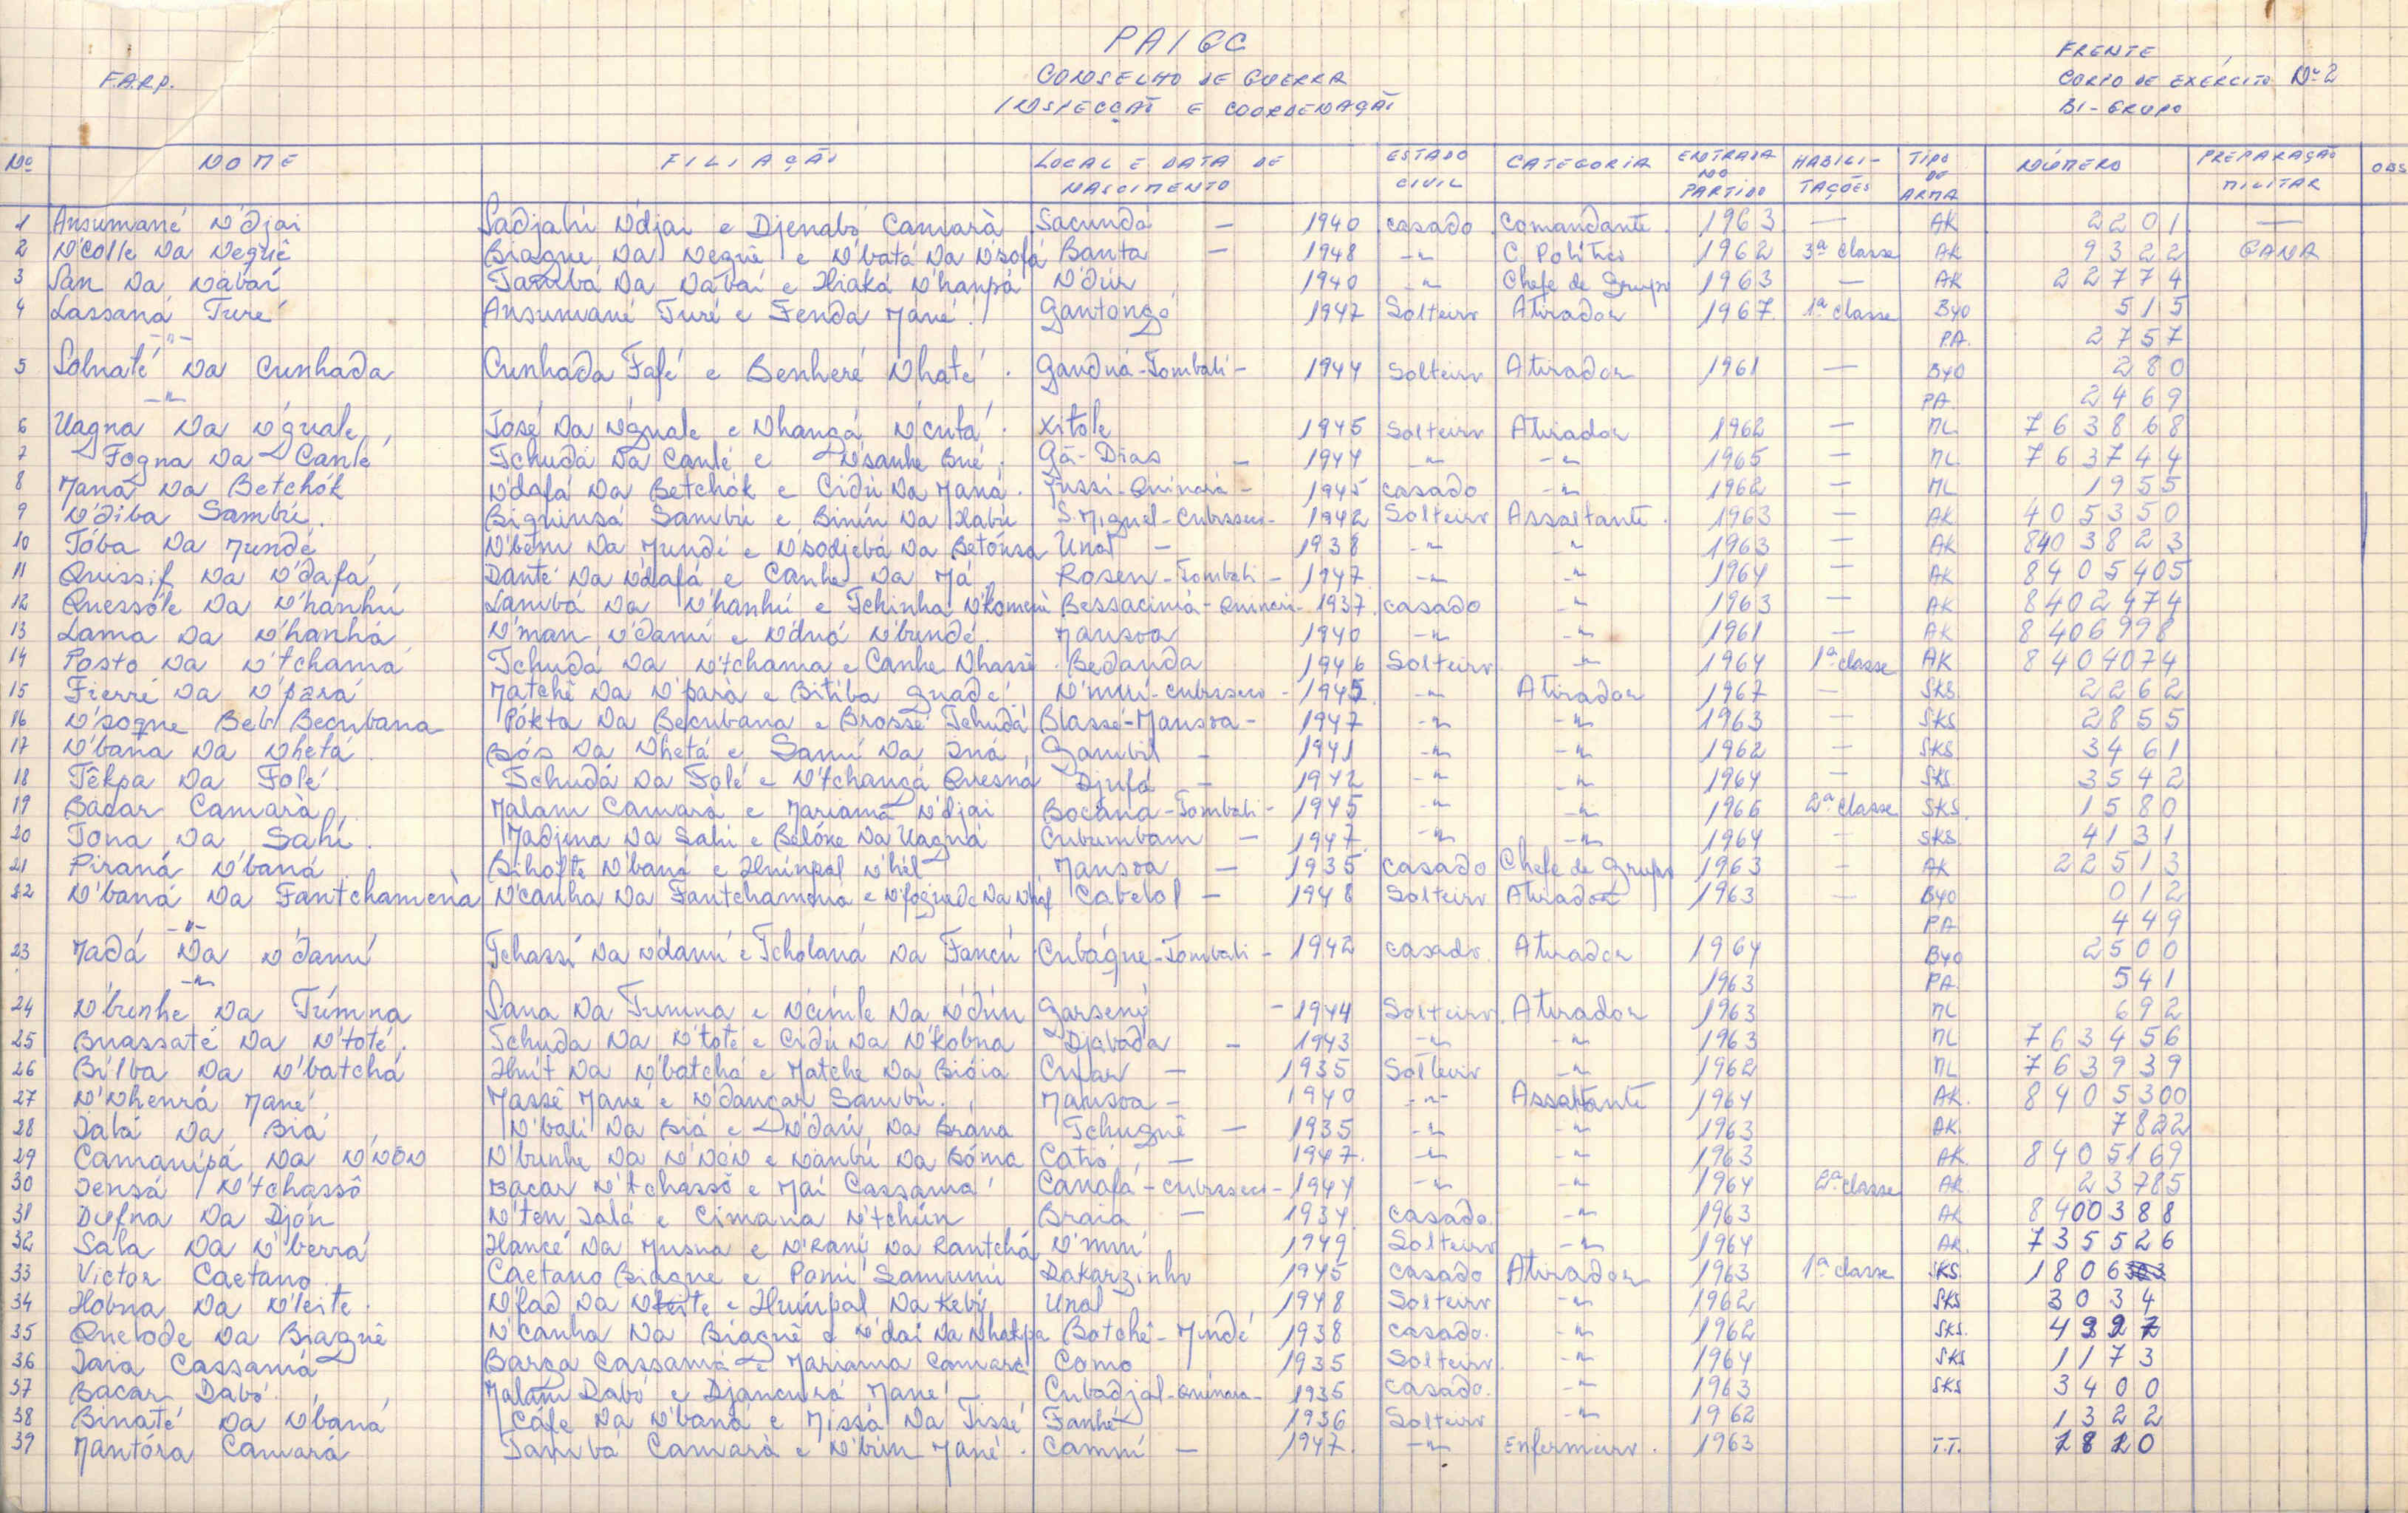 PAIGC
F.A.R.P.
CONSELHO DE GUERRA
INSPECÇÃO E COORDENAÇÃO
FRENTE
CORPO DE EXÉRCITO Nº 2
BI-GRUPO
Nº NOME FILIAÇÃO LOCAL E DATA DE NASCIMENTO ESTADO CIVIL CATEGORIA ENTRADA NO PARTIDO HABILITAÇÕES TIPO DE ARMA NÚMERO PREPARAÇÃO MILITAR OBS
1 Ansumané N'djai Sadjahi N'djai e Djenabó Camarà Sacundá — 1940 casado Comandante. 1963 — AK 2201 —
2 N'colle Na Neguê Biague Na Neguê e N'batá Na N'sofá Banta — 1948 -"- C. Político 1962 3ª classe AK 9322 GANA
3 San Na Nabaí Tambá Na Nabaí e Hiaká N'hanpá N'dúr 1940 -"- Chefe de Grupo 1963 — AK 22774
4 Lassaná Turé Ansumané Turé e Fendá Mané. Gantongó 1947 Solteiro Atirador 1967 1ª classe B40 515
-"- PA. 2757
5 Solnaté Na Cunhada Cunhada Fafé e Benheré Nhaté. Gandná-Tombali - 1944 Solteiro Atirador 1961 — B40 280
-"- PA. 2469
6 Uagna Na N'guale José Na N'guale e Nhangá N'cutá. Xitole 1945 Solteiro Atirador 1962 — ML 763868
7 Fogna Na Canlé Tchudá Na Canlé e N'sanhe Bué. Gã-Dias — 1944 -"- -"- 1965 — ML 763744
8 Maná Na Betchók N'dafá Na Betchók e Cidú Na Maná. Jussi-Quinara - 1945 casado -"- 1962 — ML 1955
9 N'diba Sambú. Biguinsá Sambú e Binín Na Habú S.Miguel-Cubisseco- 1942 Solteiro Assaltante. 1963 — AK 405350
10 Tóba Na Mundé N'bêm Na Mundé e N'sodjebá Na Betónsa Unal — 1938 -"- -"- 1963 — AK 8403823
11 Quissif Na N'dafá Danté Na N'dafá e Canhe Na Má Rosen-Tombali - 1947 -"- -"- 1964 — AK 8405405
12 Quessóle Na N'hanhú Lambá Na N'hanhú e Tchinha N'komení Bessacimá-Quinara- 1937 casado -"- 1963 — AK 8402474
13 Lama Na N'hanhá N'man N'damí e N'duá N'bundé. Mansoa 1940 -"- -"- 1961 — AK 8406998
14 Posto Na N'tchamá Tchudá Na N'tchama e Canhe Nhassé. Bedanda 1946 Solteiro -"- 1964 1ª classe AK 8404074
15 Fierré Na N'pará Matchê Na N'pará e Bitiba Guadé. N'muí-Cubisseco - 1945 -"- Atirador 1967 — SKS. 2262
16 N'sogne Beb Becubana Pókta Na Becubana e Brossé Tchudá Blassé-Mansoa- 1947 -"- -"- 1963 — SKS 2855
17 N'bana Na Nhetá Bós Na Nhetá e Samí Na Iná Gambil — 1941 -"- -"- 1962 — SKS 3461
18 Têkpa Na Folé Tchudá Na Folé e N'tchangá Quesná Djufá — 1942 -"- -"- 1964 — SKS. 3542
19 Bácar Camarà Malam Camará e Mariamá N'djai Bocána-Tombali - 1945 -"- -"- 1966 2ª classe SKS. 1580
20 Tona Na Sahí. Madjina Na Sahi e Belóne Na Uagná Cubumbam — 1947 -"- -"- 1964 — SKS. 4131
21 Piraná N'baná Bihofte N'baná e Huínpal N'hál Mansoa — 1935 casado Chefe de Grupo 1963 — AK 22513
22 N'baná Na Fantchamena N'canha Na Fantchamená e N'foguede Na Nhaf Cabelol — 1948 Solteiro Atirador 1963 — B40 012
-"- PA 449
23 Madá Na N'damí Tchassí Na N'damí e Tcholaná Na Fancú Cubáque-Tombali - 1942 casado. Atirador 1964 B40 2500
-"- 1963 PA. 541
24 N'bunhe Na Túmna Sana Na Tumna e N'cimle Na N'dún Garsené — 1944 Solteiro. Atirador 1963 ML 692
25 Buassaté Na N'toté. Tchuda Na N'toté e Cidú Na N'kobna Djabada — 1943 -"- -"- 1963 ML 763456
26 Bílba Na N'batchá Huít Na N'batchá e Matche Na Bióia Cufar — 1935 Solteiro -"- 1962 ML 763939
27 N'Nhenrá Mané Massê Mané e N'dangar Sambú. Mansoa — 1940 -"- Assaltante 1964 AK. 8405300
28 Ialá Na Biá N'bali Na Biá e N'daú Na Brána Tchuguê — 1935 -"- -"- 1963 AK. 7822
29 Camanípá Na N'NÓN N'bunhe Na N'NÓN e Nanbú Na Bóma Catió — 1947. -"- -"- 1963 AK. 8405169
30 Iensá N'tchassô Bacar N'tchassô e Maí Cassamá Canafá-Cubisseco - 1944 -"- -"- 1964 2ª classe AK. 23785
31 Dufna Na Djón N'ten Ialá e Cimana N'tchún Braia — 1934 casado. -"- 1963 AK 8400388
32 Sala Na N'berrá Hancé Na Musna e N'Raní Na Rantchá N'muí 1949 Solteiro -"- 1964 AK. 735526
33 Victor Caetano. Caetano Biague e Pomi Samuní Dakarzinho 1945 casado Atirador 1963 1ª classe SKS 1806
34 Hobna Na N'leite. N'fad Na N'leite e Huínpal Na Kebí Unal 1948 Solteiro -"- 1962 SKS 3034
35 Quelode Na Biaguê N'canha Na Biaguê e N'dai Na Nhakpa Batchê-Mindé 1938 casado. -"- 1962 SKS. 4927
36 Iaia Cassamá Barça Cassamá e Mariama Camará Como 1935 Solteiro. -"- 1964 SKS 1173
37 Bacar Dabó Malam Dabó e Djancurá Mané Cubadjal-Quinara- 1935 casado. -"- 1963 SKS 3400
38 Binaté Na N'baná Cáfe Na N'baná e Missá Na Tissé Fanhé 1936 Solteiro -"- 1962 1322
39 Mantóra Camará Tambá Camarà e N'bim Mané. Camuí — 1947. -"- Enfermeiro. 1963 T.T. 7820